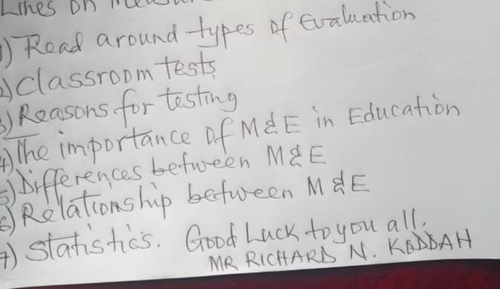 Lines on Measur
1) Read around types of Evaluation
2) Classroom tests
3) Reasons for testing
4) The importance of M & E in Education
5) Differences between M & E
6) Relationship between M & E
7) Statistics. Good Luck to you all.
MR RICHARD N. KODDAH